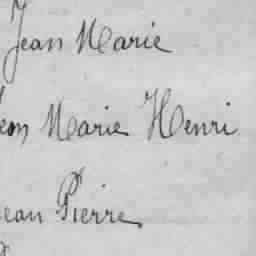 Jean Marie
Leon Marie Henri
Jean Pierre